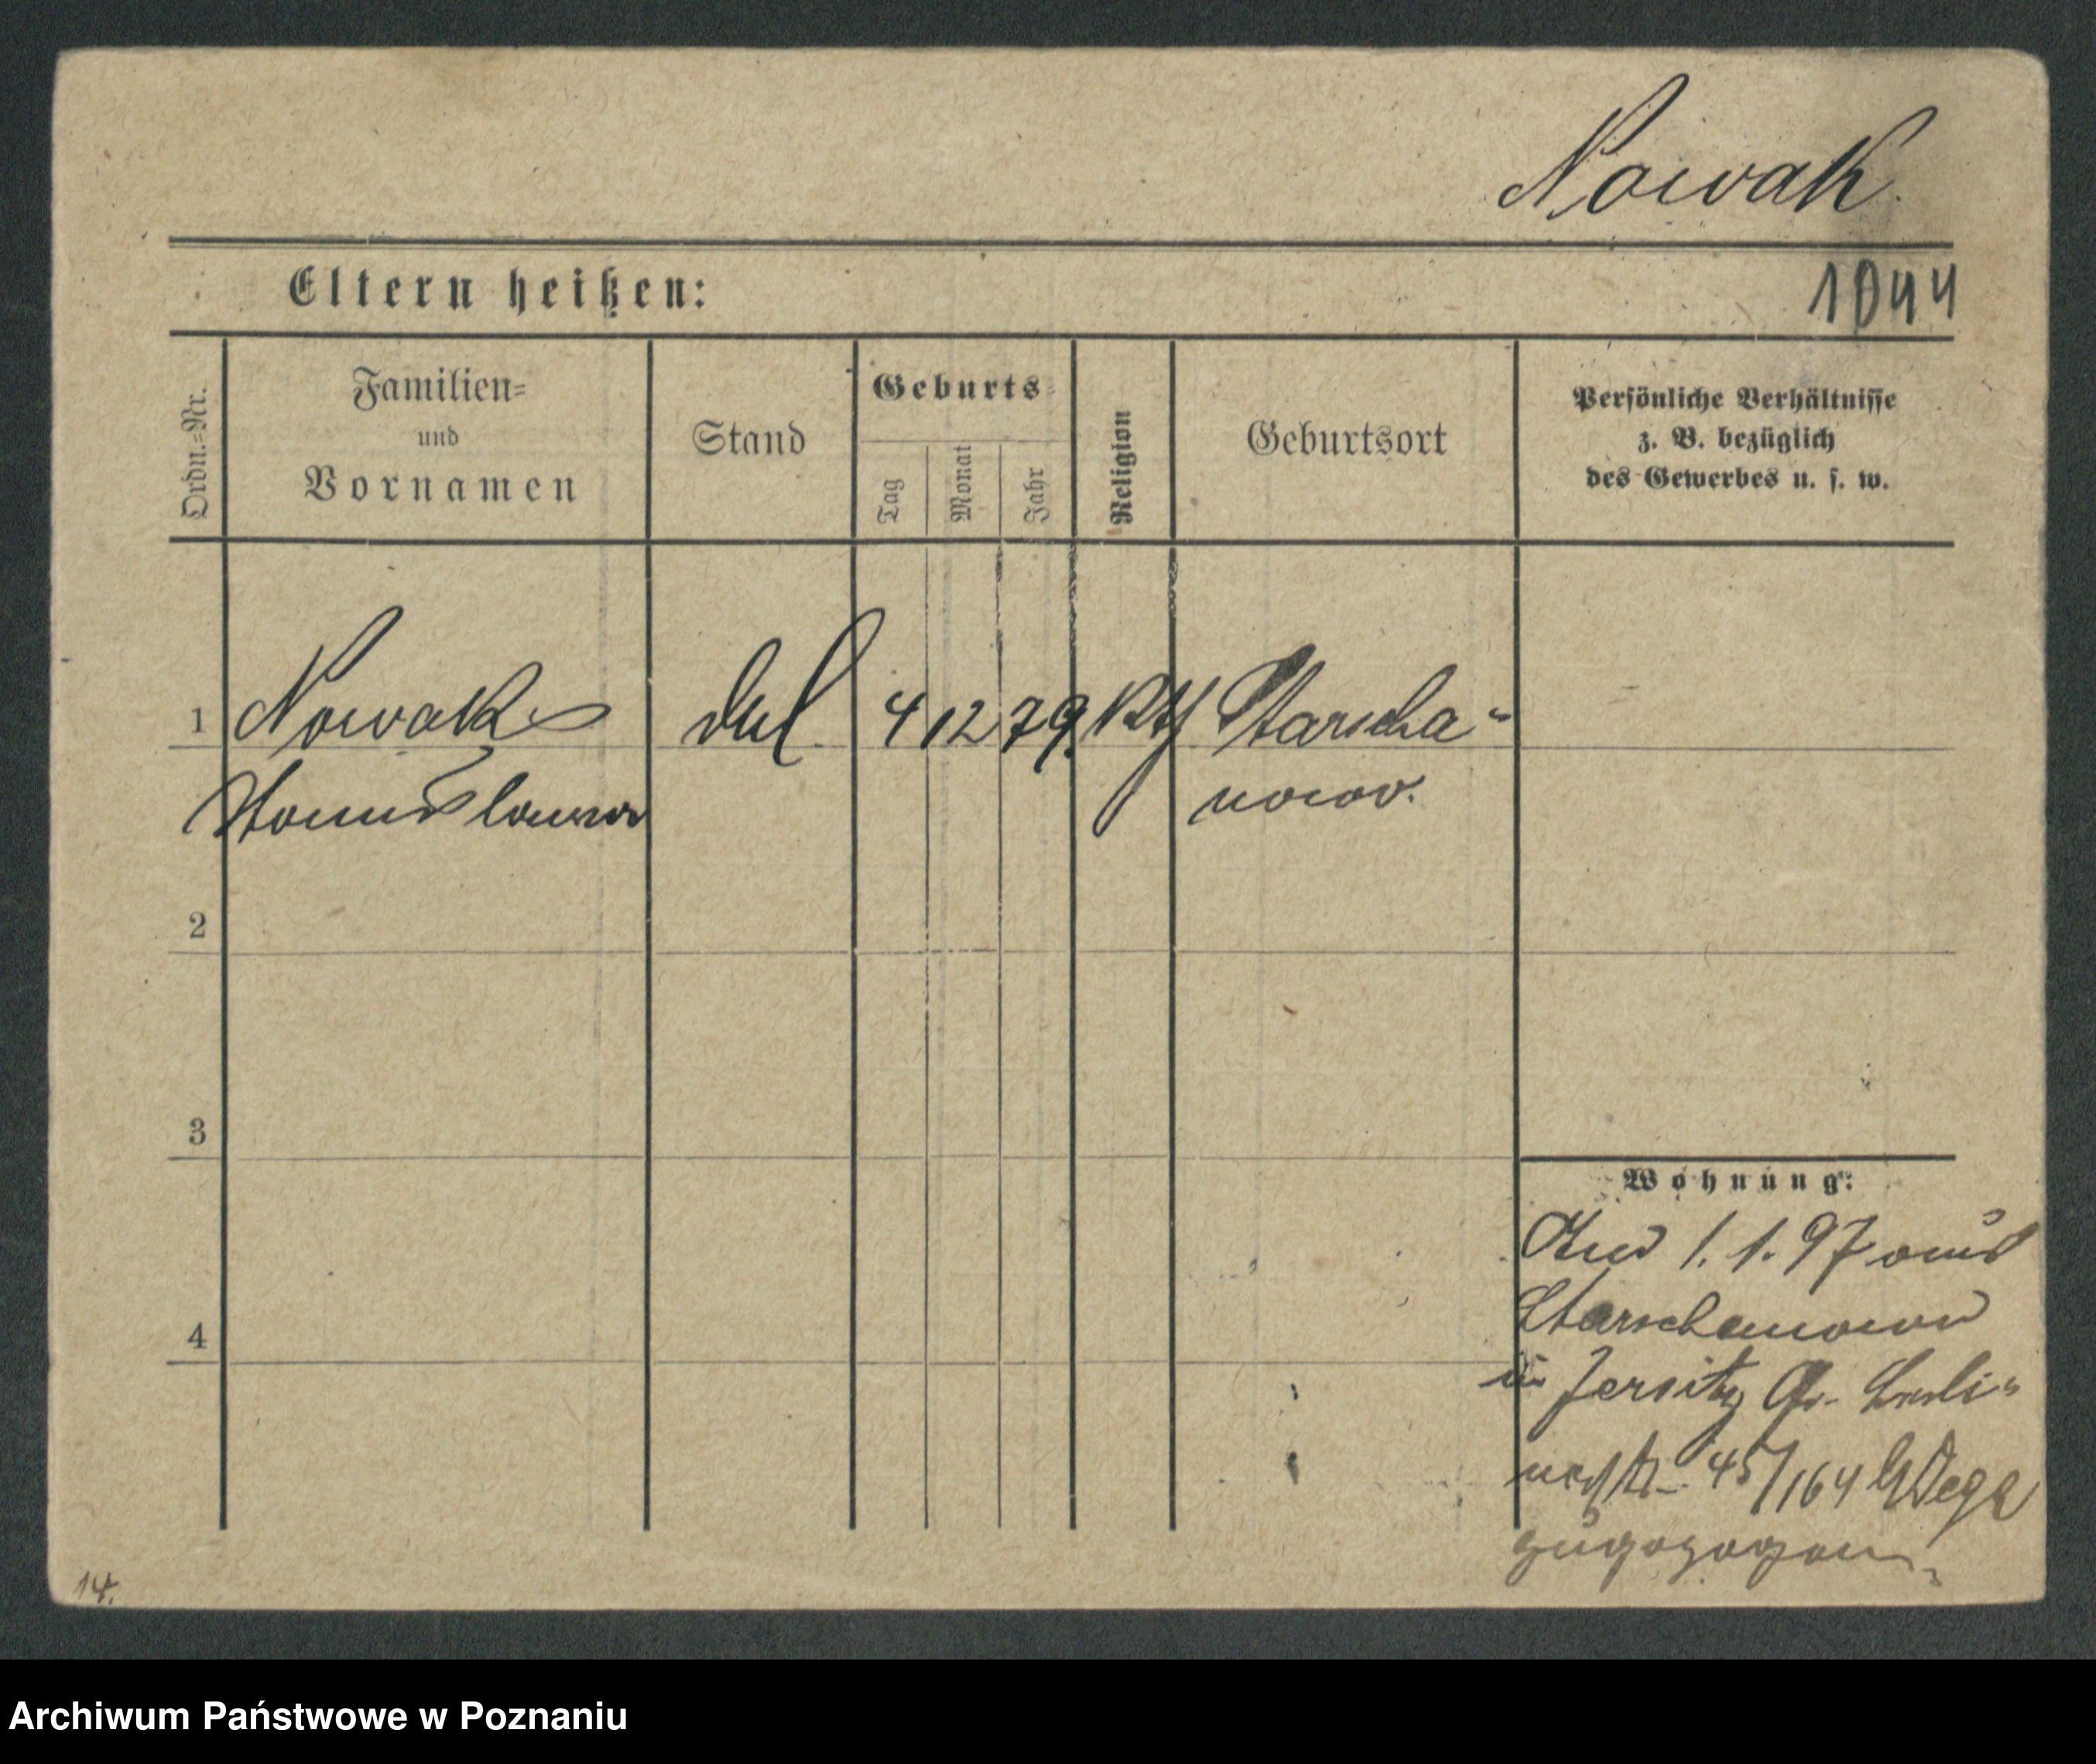 Nowak
Eltern heißen:
1044
Ordn.=Nr.
Familien=
und
Vornamen
Stand
Geburts=
Tag
Monat
Jahr
Religion
Geburtsort
Persönliche Verhältnisse
z. B. bezüglich
des Gewerbes u. s. w.
1 Nowak 4 12 79. Kth Starscha=
Stanislawa nowo.
2
3
4
Wohnung:
1.1.97 aus
Starschanowo
in Jersitz Gr. Berli=
nerstr. 45/164 b/Wega
zugezogen
14.
Archiwum Państwowe w Poznaniu